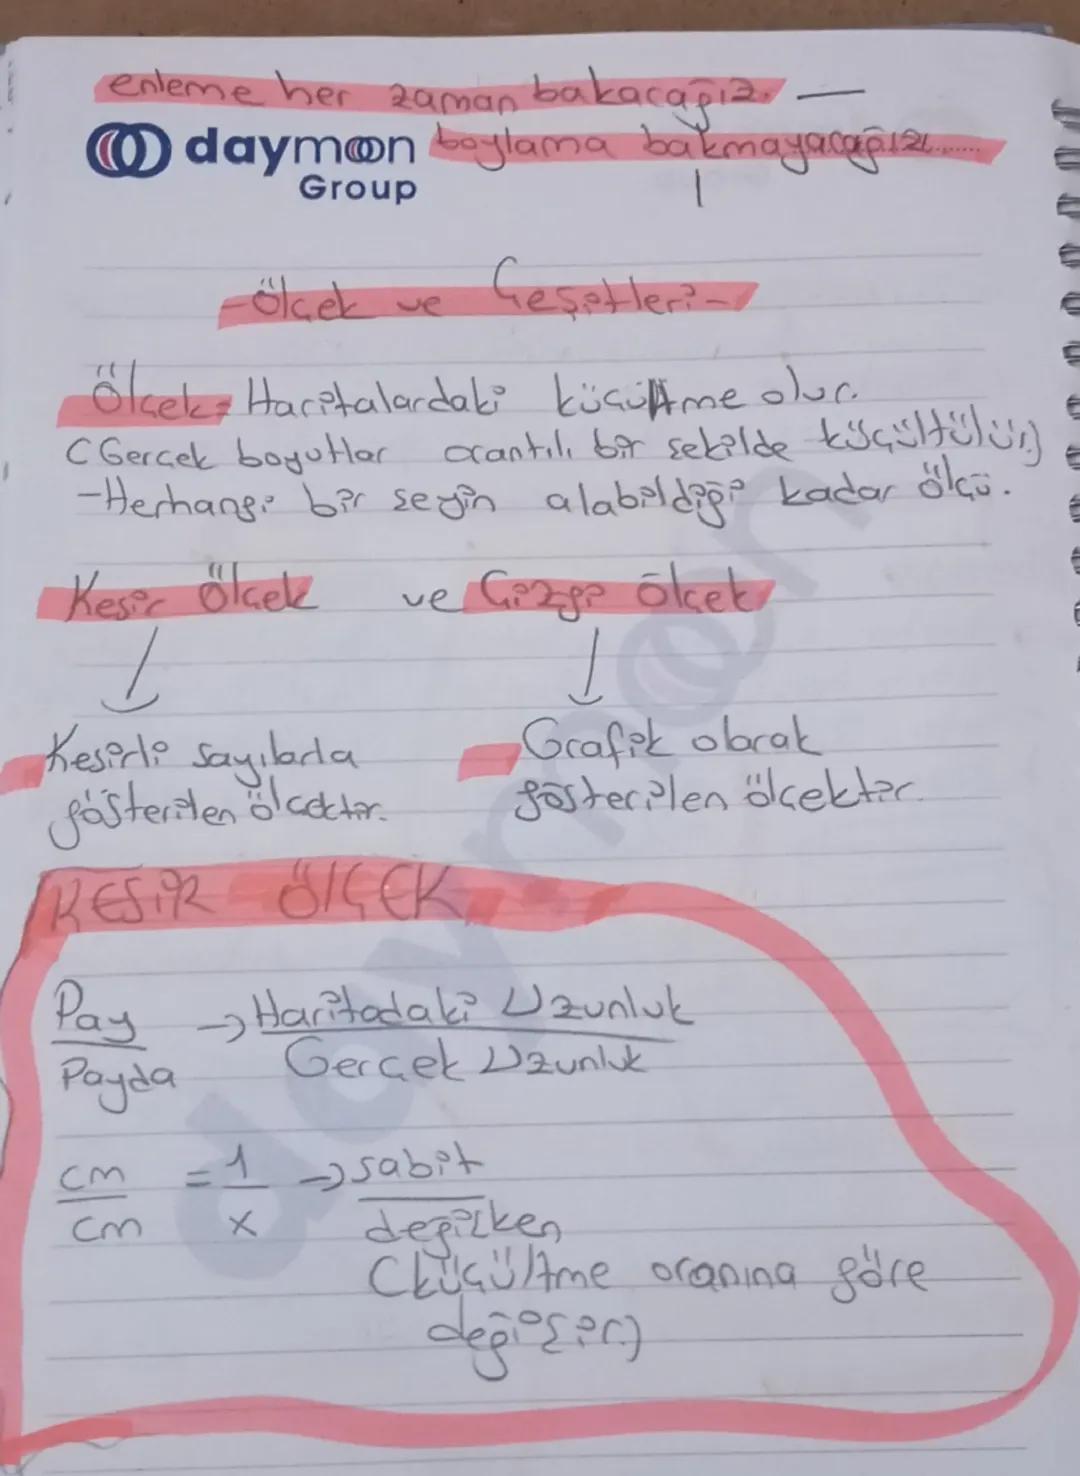 enleme her zaman bakacağız. —
daymoon Group
boylama bakmayacağız.
-Ölçek ve Çeşitleri-
Ölçek= Haritalardaki küçültme olur.
(Gerçek boyutlar orantılı bir şekilde küçültülür.)
-Herhangi bir şeyin alabildiği kadar ölçü.
Kesir Ölçek ve Çizgi Ölçek
Kesirli sayılarla gösterilen ölçektir.
Grafik olarak gösterilen ölçektir.
KESİR ÖLÇEK
Pay → Haritadaki Uzunluk
Payda Gerçek Uzunluk
cm = 1 → sabit
cm x değişken
(küçültme oranına göre
değişir.)
daymoon